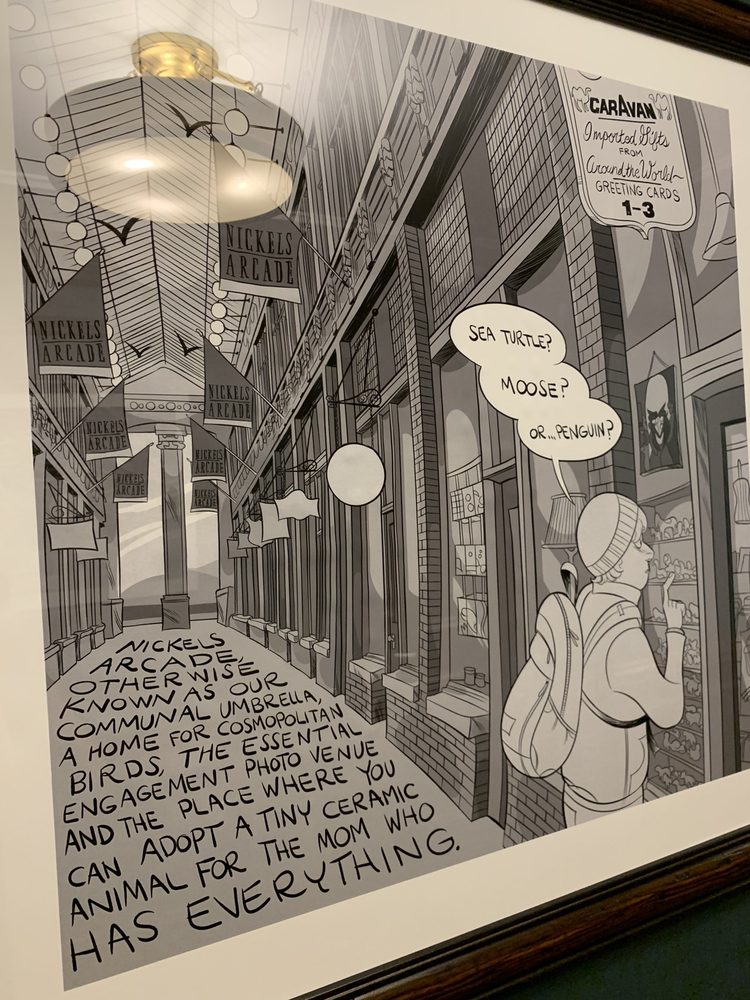 CARAVAN
Imported Gifts
FROM
Around the World
GREETING CARDS
1-3
NICKELS
ARCADE
NICKELS
ARCADE
NICKELS
ARCADE
NICKELS
ARCADE
NICKELS
ARCADE
NICKELS
ARCADE
NICKELS
ARCADE
SEA TURTLE?
MOOSE?
OR...PENGUIN?
NICKELS
ARCADE,
OTHERWISE
KNOWN AS OUR
COMMUNAL UMBRELLA,
A HOME FOR COSMOPOLITAN
BIRDS, THE ESSENTIAL
ENGAGEMENT PHOTO VENUE
AND THE PLACE WHERE YOU
CAN ADOPT A TINY CERAMIC
ANIMAL FOR THE MOM WHO
HAS EVERYTHING.